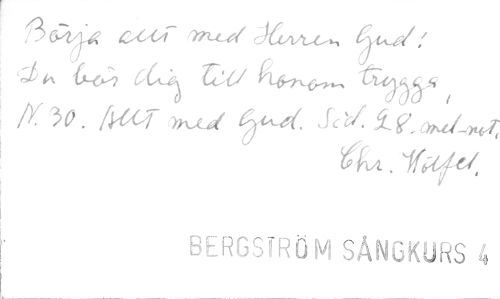 Börja allt med Herren Gud!
Du bör dig till honom trygga,
N. 30. Allt med Gud. Sid. 28. mel-not.
Chr. Wölfel.
BERGSTRÖM SÅNGKURS 4